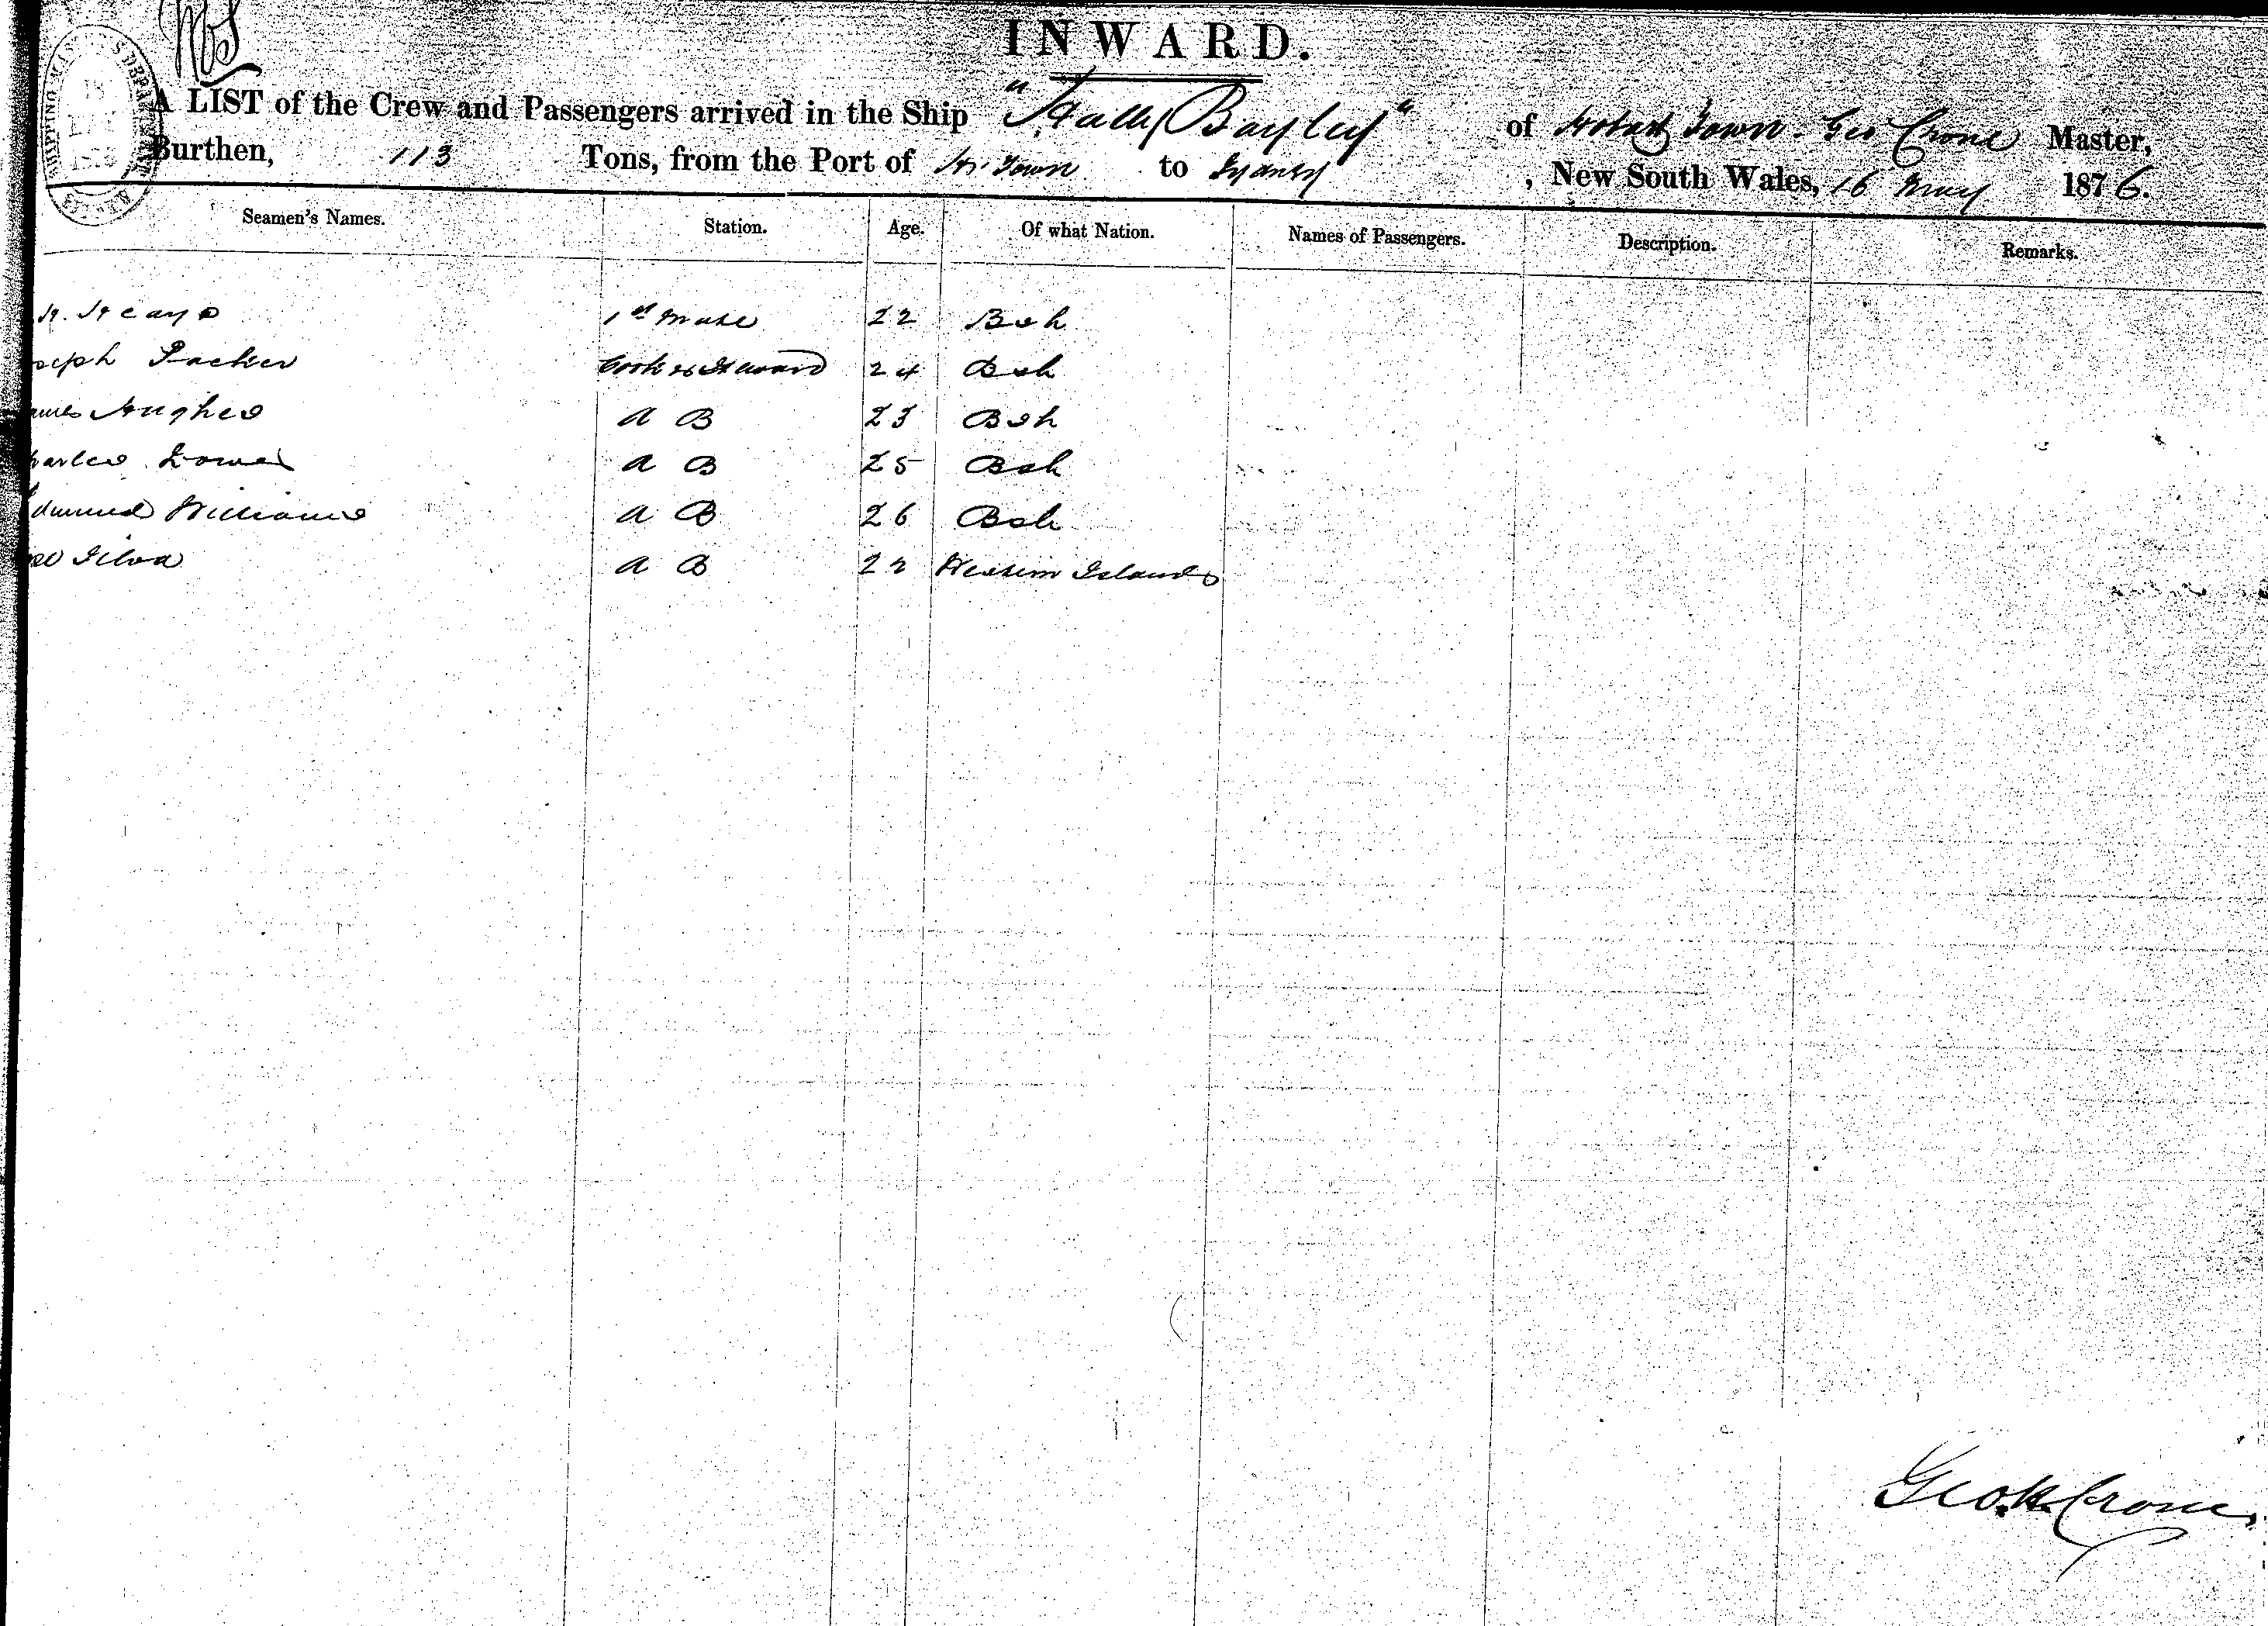 INWARD.
A LIST of the Crew and Passengers arrived in the Ship "Hally Bayley" of Hobart Town - Geo Crone Master,
Burthen, 113 Tons, from the Port of H. Town to Sydney, New South Wales, 16 May 1876.
Seamen's Names. Station. Age. Of what Nation. Names of Passengers. Description. Remarks.
1st Mate 22 Bsh
oseph Packer Cook & Steward 24 Bsh
ames Hughes A B 23 Bsh
harles A B 25 Bsh
dmund Williams A B 26 Bsh
Silva A B 22 Western Islands
Geo. H. Crone